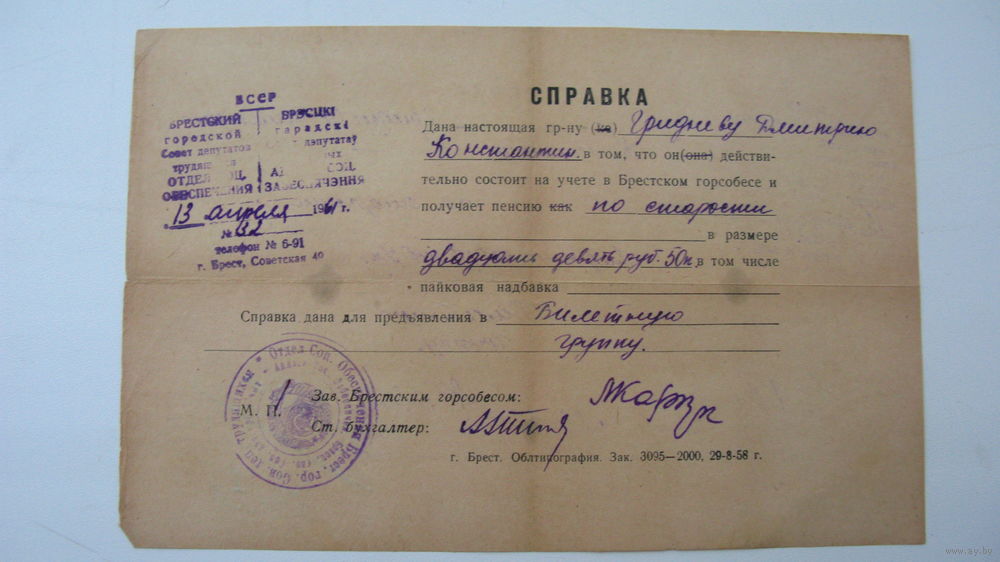 БССР
БРЕСТСКИЙ БРЭСЦКІ
городской гарадскі
Совет депутатов дэпутатаў
трудящихся
ОТДЕЛ СОЦ. СОЦ.
ОБЕСПЕЧЕНИЯ ЗАБЕСПЯЧЭННЯ
13 апреля 1961 г.
№ 132
телефон № 6-91
г. Брест, Советская 40
СПРАВКА
Дана настоящая гр-ну (ке) Гридневу Дмитрию
Константин. в том, что он(она) действи-
тельно состоит на учете в Брестском горсобесе и
получает пенсию как по старости
в размере
двадцать девять руб. 50к. в том числе
пайковая надбавка
Справка дана для предъявления в Билетную
группу.
Зав. Брестским горсобесом:
М. П.
Ст. бухгалтер:
г. Брест. Облтипография. Зак. 3095—2000, 29-8-58 г.
Отдел Соц. Обеспечения Брест. гор. Сов. деп. трудящихся
www.ay.by